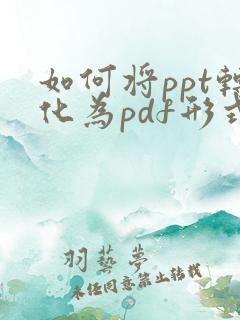 如何将ppt转
化为pdf形式
羽藝夢
未经同意禁止转载